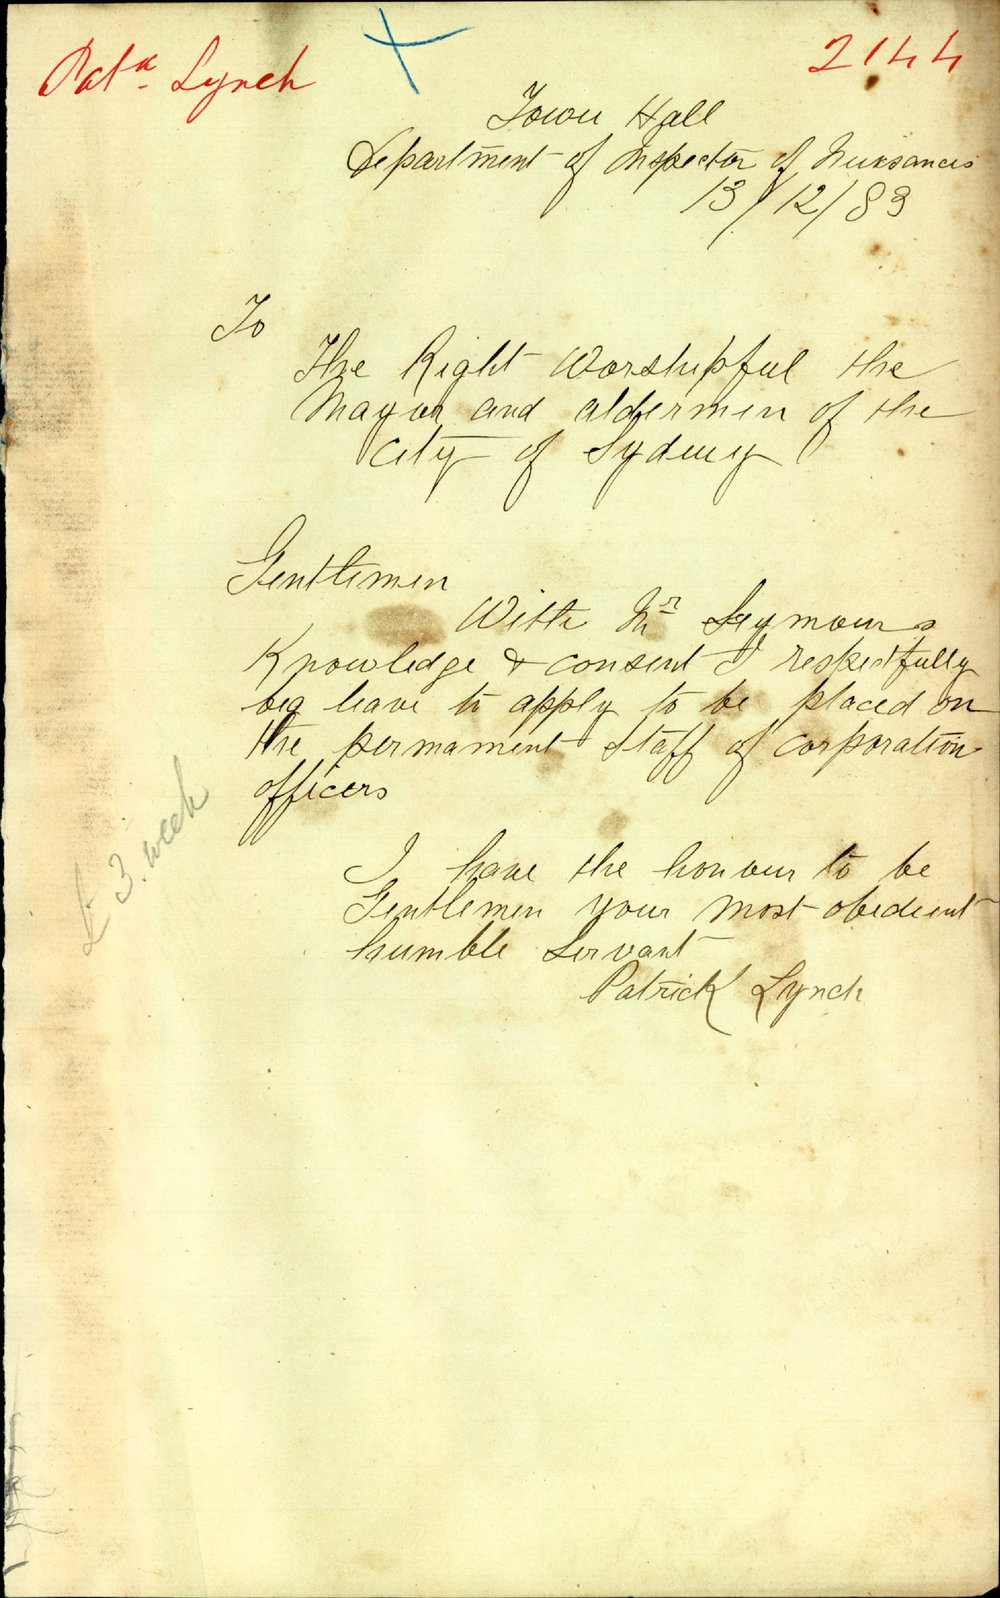 Patk. Lynch
2144
Town Hall
Department of Inspector of Nuisances
13/12/83
To
The Right Worshipful the
Mayor and aldermen of the
City of Sydney
Gentlemen
With Mr Seymours
Knowledge & consent I respectfully
beg leave to apply to be placed on
the permament Staff of Corporation
officers
£3. week
I have the honour to be
Gentlemen your most obedient
humble Servant
Patrick Lynch